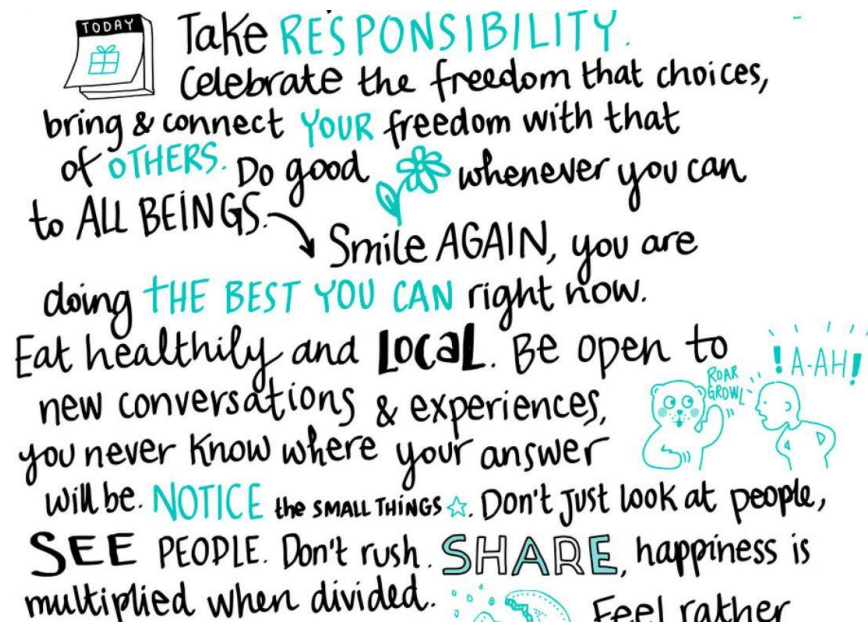 TODAY
Take RESPONSIBILITY.
Celebrate the freedom that choices,
bring & connect YOUR freedom with that
of OTHERS. Do good whenever you can
to ALL BEINGS.
Smile AGAIN, you are
doing THE BEST YOU CAN right now.
Eat healthily and LOCAL. Be open to
! A-AH!
ROAR
GROWL
new conversations & experiences,
you never know where your answer
will be. NOTICE the SMALL THINGS. Don't Just look at people,
SEE PEOPLE. Don't rush. SHARE, happiness is
multiplied when divided.
Feel rather